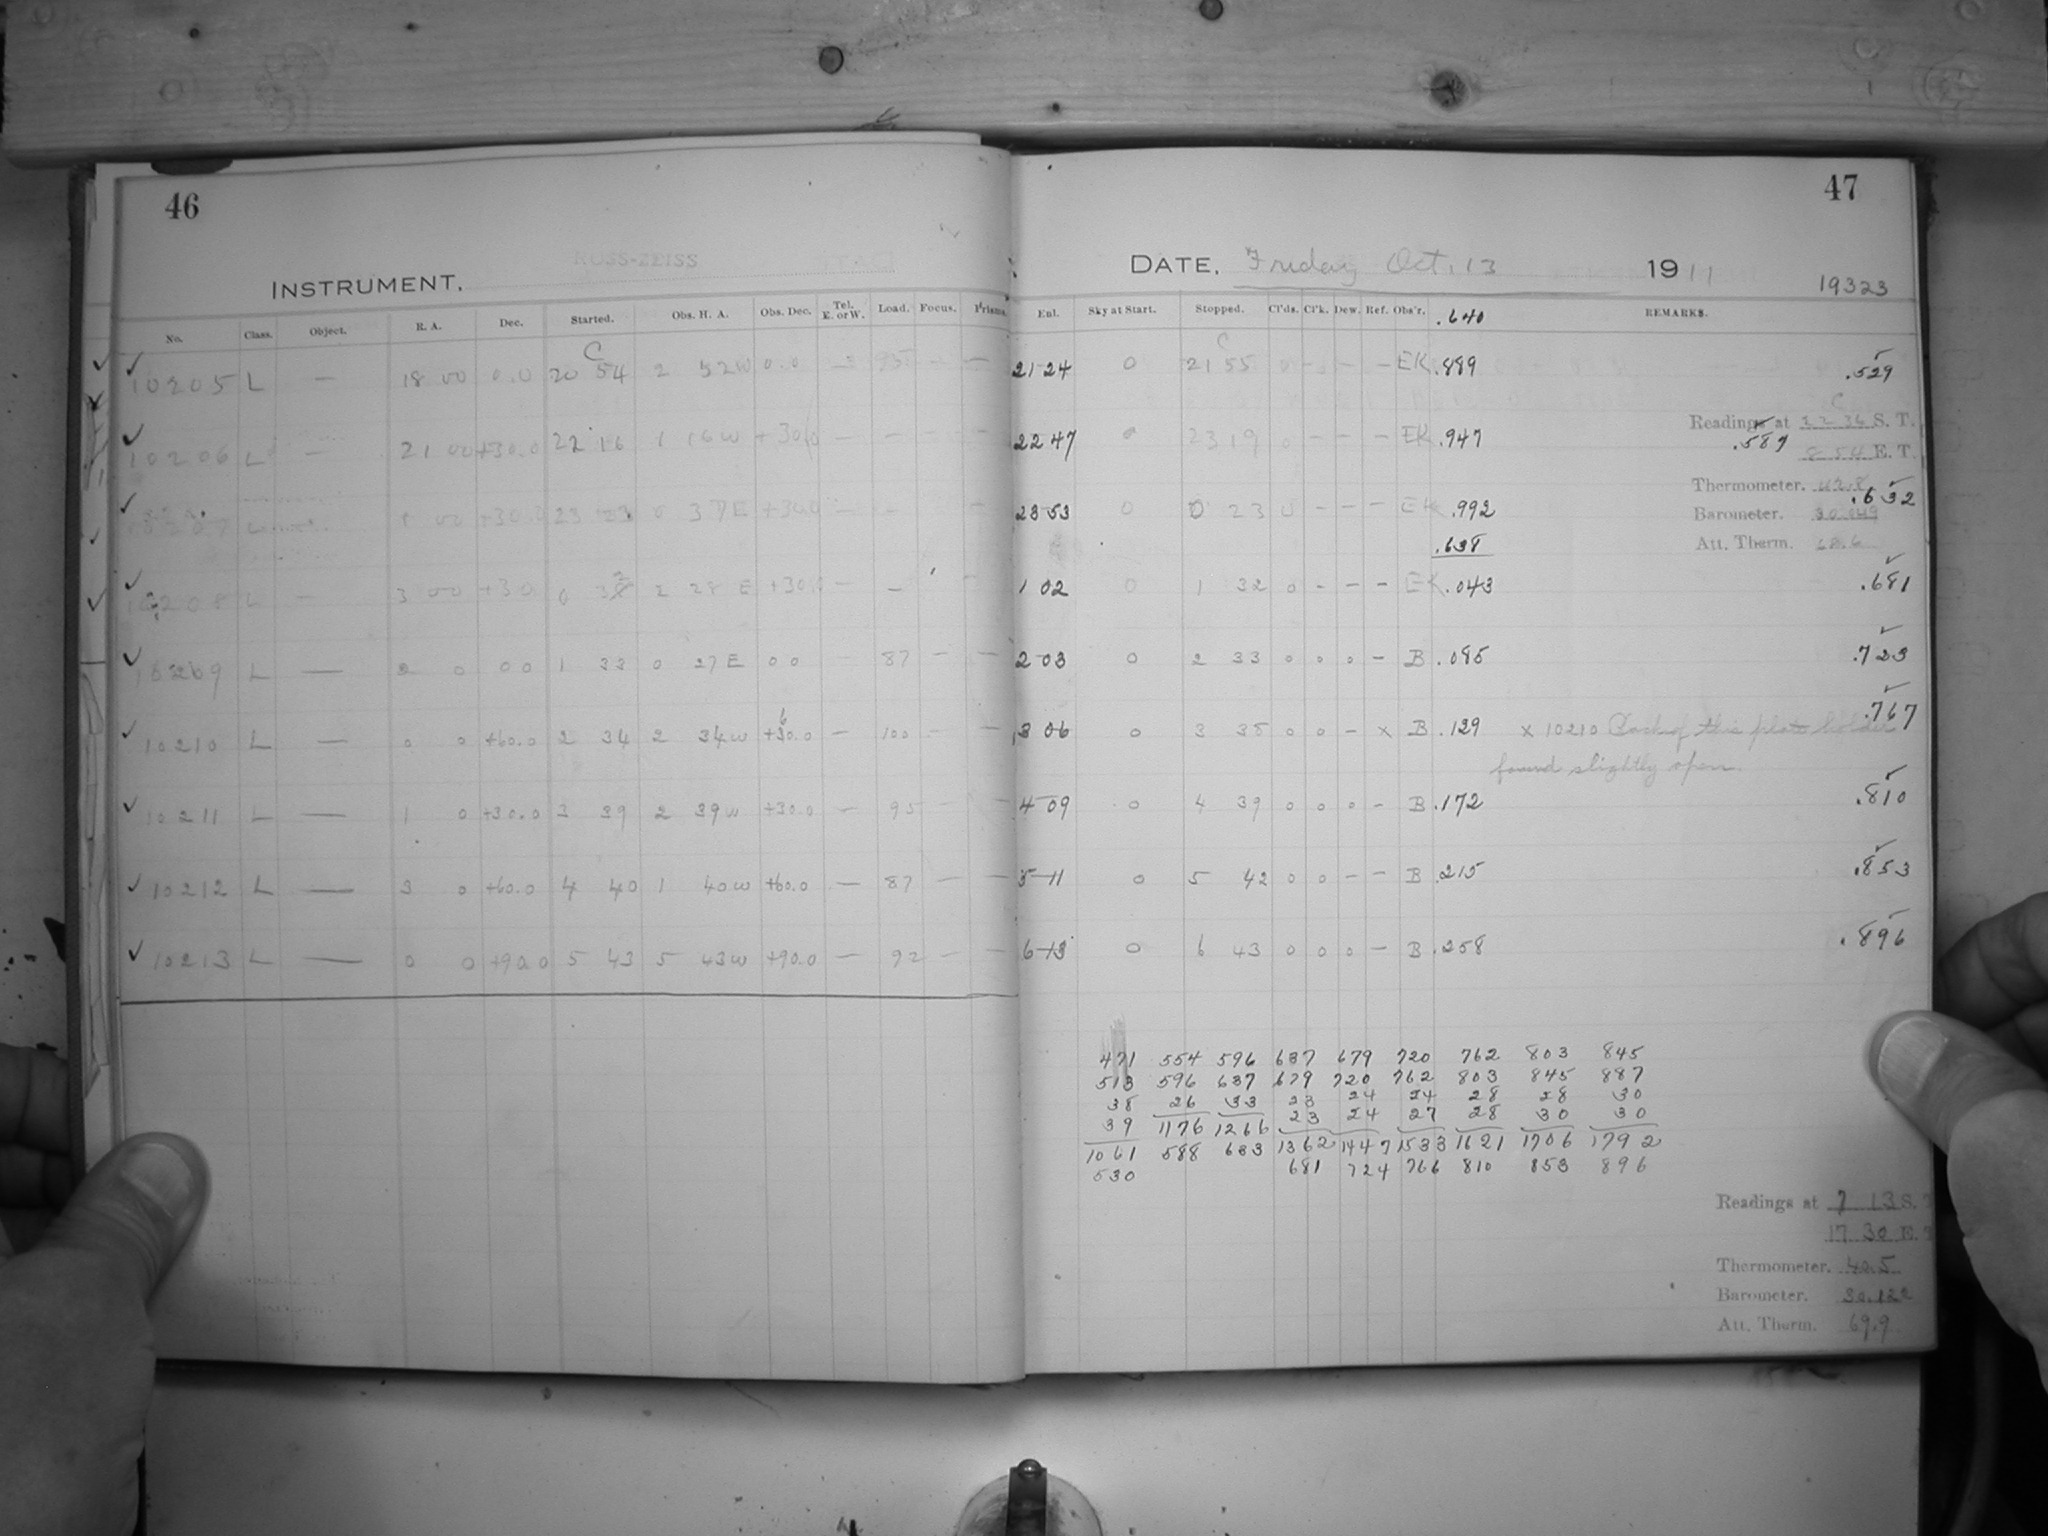 46
INSTRUMENT. ROSS-ZEISS
No. Class. Object. R. A. Dec. Started. Obs. H. A. Obs. Dec. Tel. E. or W. Load. Focus. Prisms.
10205 L — 18 00 0.0 20 54 2 52 W 0.0 — — —
10206 L — 21 00 +30.0 22 16 1 16 W +30.0 — — — —
L +30.0 23 23 0 37 E +30.0 — — —
10208 L — 3 00 +30 0 2 28 E +30.0 — — —
10209 L — 2 0 0 0 1 33 0 27 E 0 0 — 87 — —
10210 L — 0 0 +60.0 2 34 2 34 W — 100 — —
10211 L — 1 0 +30.0 3 39 2 39 W +30.0 — 95 — —
10212 L — 3 0 +60.0 4 40 1 40 W +60.0 — 87 — —
10213 L — 0 0 +90.0 5 43 5 43 W +90.0 — 92 — —
47
DATE, Friday Oct. 13 1911
19323
Enl. Sky at Start. Stopped. Cl'ds. Cl'k. Dew. Ref. Obs'r. .640 REMARKS.
21 24 0 21 55 0 - - - EK .889 .529
Readings at 22 36 S. T.
22 47 0 23 19 0 - - - EK .947 .587
8 54 E. T.
Thermometer. 42.8
23 53 0 0 23 0 - - - EK .992 .632
Barometer. 30.049
.638
Att. Therm. 68.6
1 02 0 1 32 0 - - - EK .043 .681
2 03 0 2 33 0 0 0 - B .085 .723
3 06 0 3 35 0 0 - x B .129 .767
x 10210 Back of this plate holder
found slightly open.
4 09 0 4 39 0 0 0 - B .172 .810
5 11 0 5 42 0 0 - - B .215 .853
6 13 0 6 43 0 0 0 - B .258 .896
471 554 596 637 679 720 762 803 845
513 596 637 679 720 762 803 845 887
38 26 33 23 24 24 28 28 30
39 1176 1266 23 24 27 28 30 30
1061 588 633 1362 1447 1533 1621 1706 1792
530 681 724 766 810 853 896
Readings at 7 13 S.
17 30 E.
Thermometer. 40.5
Barometer. 30.122
Att. Therm. 69.9